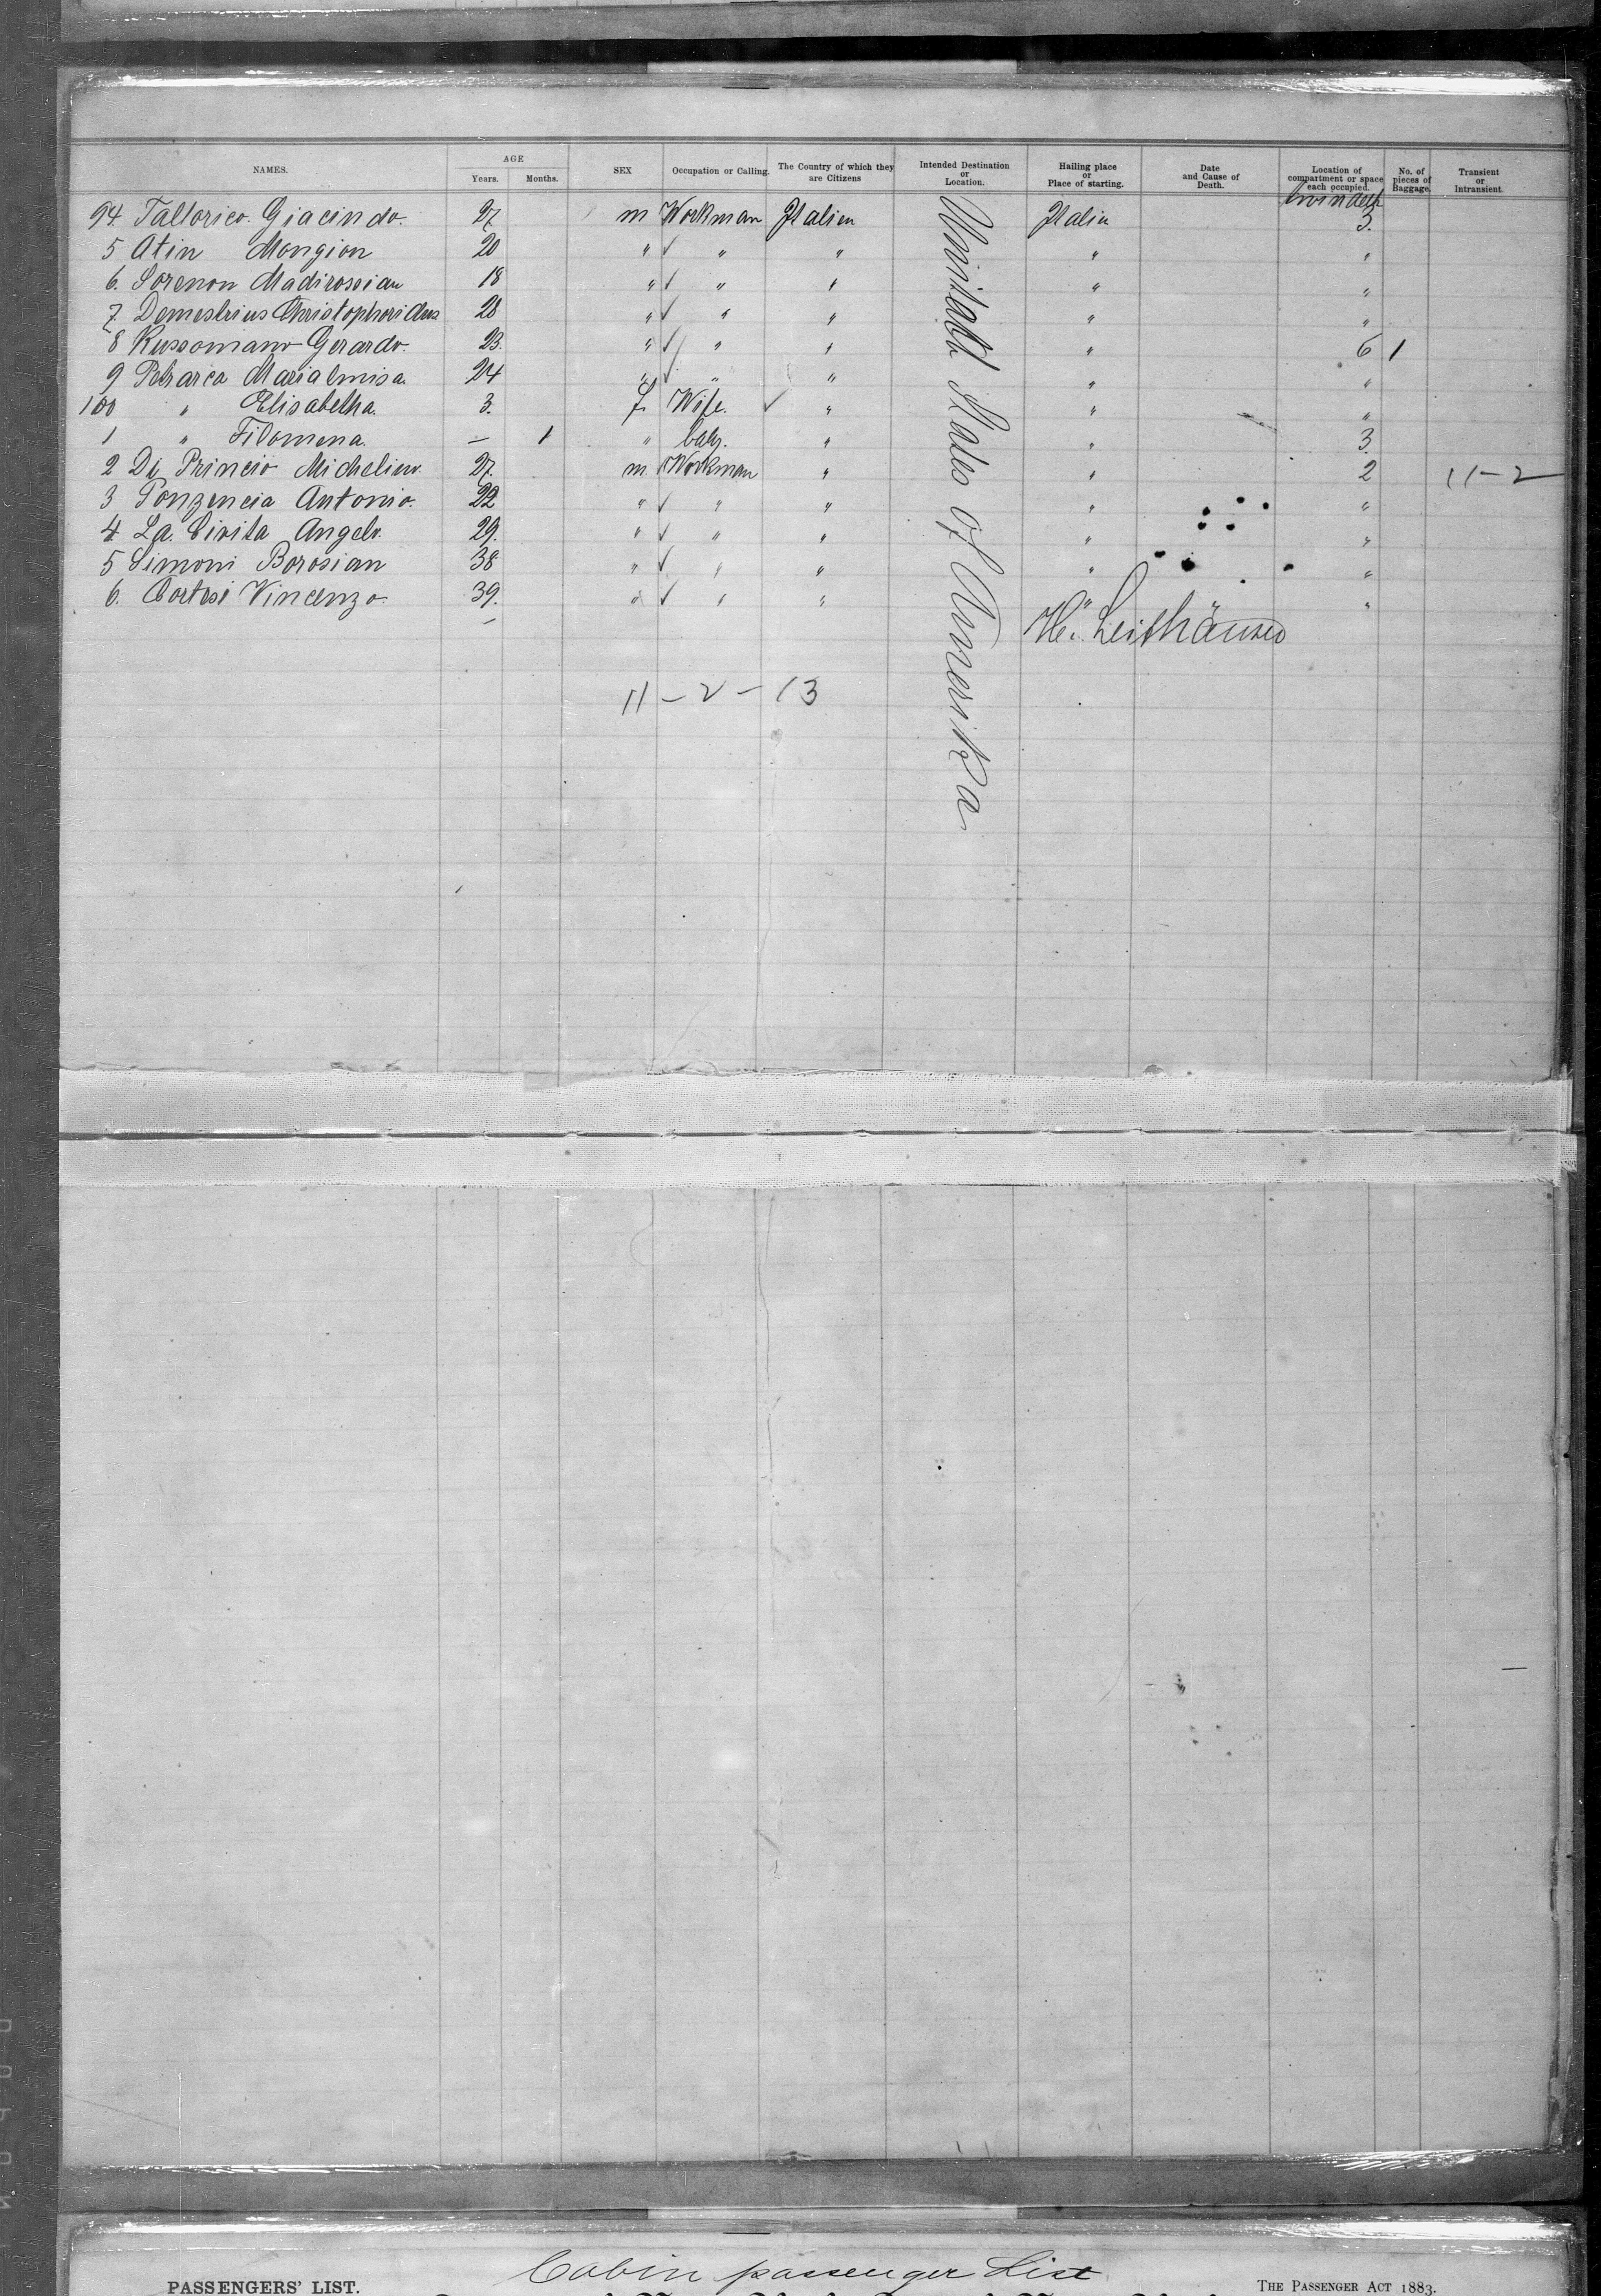 NAMES. AGE Years. Months. SEX Occupation or Calling. The Country of which they are Citizens Intended Destination or Location. Hailing place or Place of starting. Date and Cause of Death. Location of compartment or space each occupied. No. of pieces of Baggage. Transient or Intransient.
94 Tallorico Giacindo. 27 m Workman Italien Italien 3.
5 Atin Mongion 20 " " " " "
6. Sorenon Madirossian 18 " " " " "
7. Demestrius Christophorides 28 " " " " "
8 Russomano Gerardo. 23. " " " " 6 1
9 Petrarca Marialmisa. 24 " " " " "
100 " Elisabetha. 3. f. Wife. " " "
1 " Filomena. — 1 " baby. " " 3.
2 Di Princio Michelino. 27 m. Workman " " 2 11-2
3 Ponzencia Antonio. 22 " " " " "
4. La Civita Angelo. 29. " " " " "
5 Simoni Borosian 38 " " " " "
6. Cortesi Vincenzo. 39. " " " " "
Unitatd States of Amerika
H. Leithäuser
11-2-13
Cabin passenger List
PASSENGERS' LIST. THE PASSENGER ACT 1883.